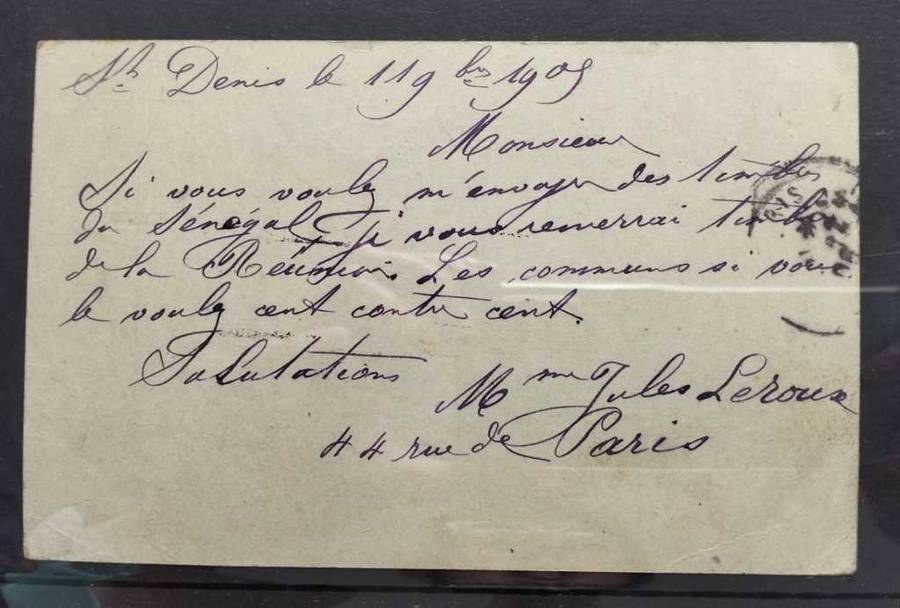 St Denis le 11 9bre 1905
Monsieur
Si vous voulez m'envoyer des timbres
du Sénégal je vous remerrai timbres
de la Réunion. Les communs si vous
le voulez cent contre cent.
Salutations
Mme Jules Leroux
44 rue de Paris